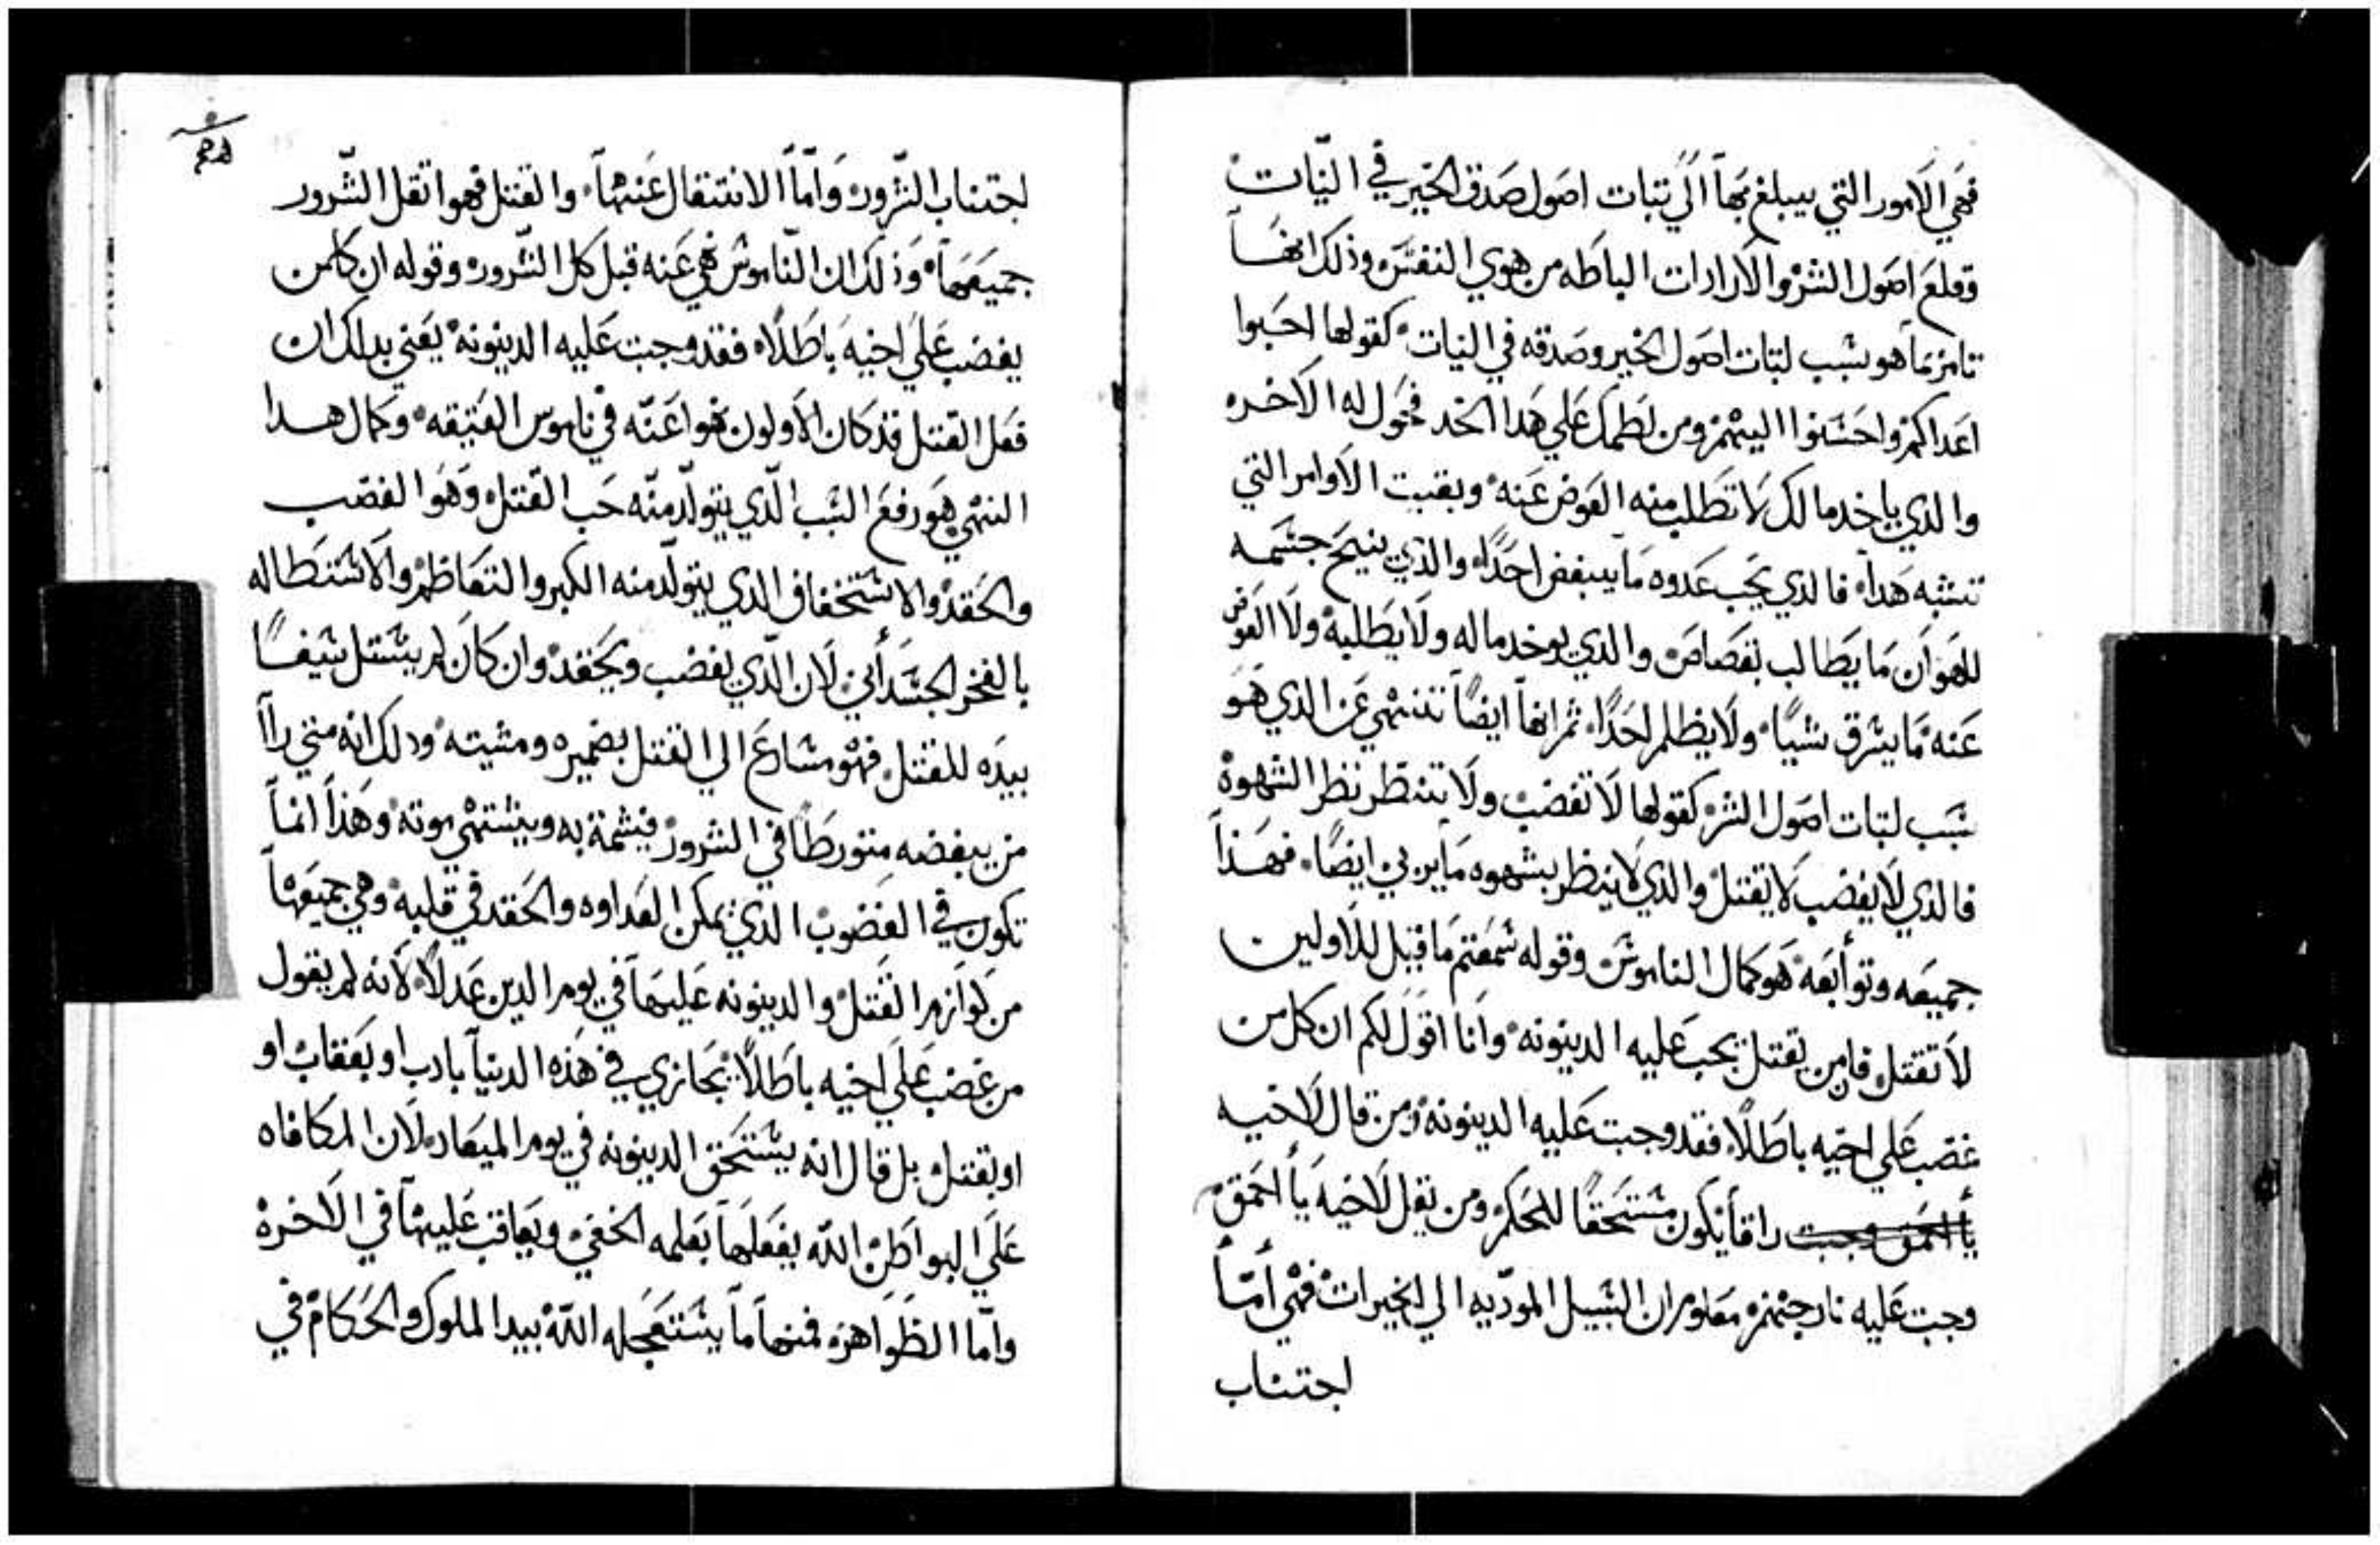 فهي الامور التي يبلغ بها الي تبات اصول صدق الخير في النيات
وقلع اصول الشر والارادات الباطه من هوي النفس وذلك انها
تامر بما هو بسبب لتبات اصول الخير وصدقه في النيات كقولها احبوا
اعداكم واحسنوا اليهم ومن لطمك علي هدا الخد فحول له الاخره
والذي ياخد مالك لا تطلب منه العوض عنه وبقيت الاوامر التي
تشبه هدا فالذي يحب عدوه ما يبغض احدًا والذي يبيح جسمه
للهوان ما يطالب بقصاص والذي يوخد ماله ولا يطلبه ولا العوض
عنه ما يسرق شيًا ولا يظلم احدًا ثم انها ايضًا تنهي عن الذي هو
سبب لتبات اصول الشر كقولها لا تغضب ولا تنظر نظر الشهوة
فالذي لا يغضب لا يقتل والذي لا ينظر بشهوه ما يزني ايضًا فهذا
جميعه وتوابعه هو كمال الناموس وقوله سمعتم ما قيل للاولين
لا تقتل فان من يقتل تجب عليه الدينونه وانا اقول لكم ان كل من
غضب علي اخيه باطلًا فقد وجبت عليه الدينونه ومن قال لاخيه
يا احمق وجبت راقا يكون مستحقًا للحكم ومن يقل لاخيه يا احمق
وجبت عليه نار جهنم معلوم ان السبيل الموديه الي الخيرات فهي اما
اجتناب
اجتناب الشرور واما الانتقال عنها والقتل فهو اتقل الشرور
جميعها وذلك ان الناموس نهي عنه قبل كل الشرور وقوله ان كلمن
يغضب علي اخيه باطلًا فقد وجبت عليه الدينونه يعني بدلك ان
فعل القتل قد كان الاولون نهوا عنه في ناموس العتيقه وكمال هدا
النهي هو رفع السبب الذي يتولد منه حب القتل وهو الغضب
والحقد والاستخفاف الذي يتولد منه الكبر والتعاظم والاستطاله
بالفخر الجسداني لان الذي يغضب ويحقد وان كان لم يستل سيفًا
بيده للقتل فهو مسارع الي القتل بضميره ومشيته ودلك انه متي راا
من يبغضه متورطًا في الشرور فيشمت به ويشتهي موته وهذا انما
تكون في الغضوب الذي تمكن العداوه والحقد في قلبه وهي جميعها
من لوازم القتل والدينونه عليها في يوم الدين عدلًا لانه لم يقول
من غضب علي اخيه باطلًا يجازي في هذه الدنيا بادب او بعقاب او
او بقتل بل قال انه يستحق الدينونه في يوم الميعاد لان المكافاه
علي البواطن الله يفعلها بعلمه الخفي ويعاقب عليها في الاخرة
واما الظواهر فمنها ما يستعجله الله بيد الملوك والحكام في